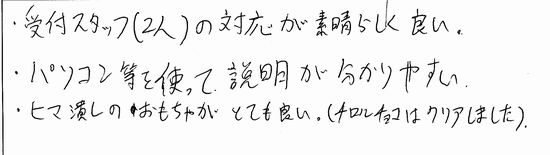 ・受付スタッフ(2人)の対応が素晴らしく良い。
・パソコン等を使って説明が分かりやすい
・ヒマ潰しのおもちゃがとても良い。(チロルチョコはクリアしました).